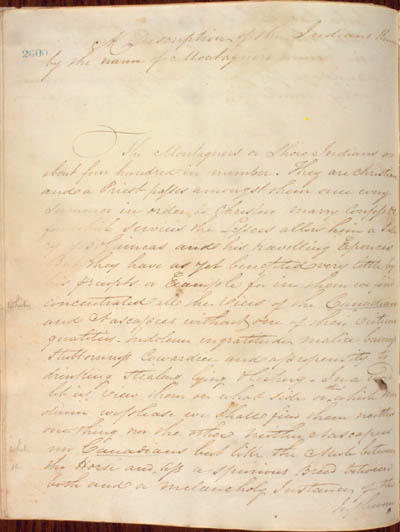 2600
A Description of the Indians
by the name of Montagners
The Montagners or Shore Indians are
about four hundred in number. They are Christians
and a Priest passes amongst them once every
Summer in order to Christen marry Confess &
Services the Lessees allow him a
of Guineas and his travelling Expences
they have as yet benefited very little by
his precepts or Example for in them we find
concentrated all the Vices of the Canadians
and Nascapees without one of their virtues
Indolence ingratitude malice
Stubbornness Cowardice and a propensity to
drinking stealing lying &
let us view them on what side or in which
we please we shall find them neither
one thing nor the other neither Nascapees
nor Canadians but like the Mule between
the Horse and Ass a spurious Breed between
both and a melancholy Instance of the